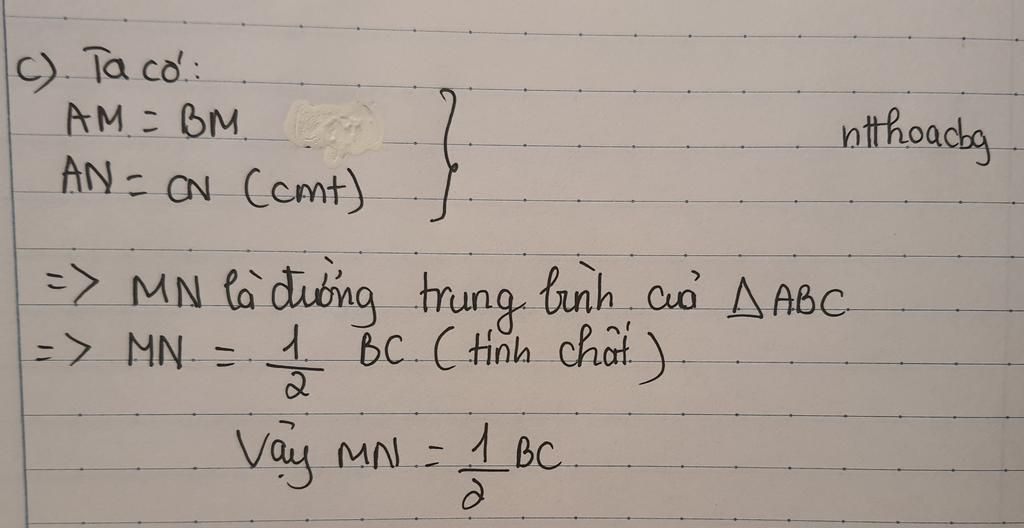 c). Ta có:
AM = BM
AN = CN (cmt)
ntthoacbg
=> MN là đường trung bình của Δ ABC
=> MN = 1/2 BC (tính chất)
Vậy MN = 1/2 BC